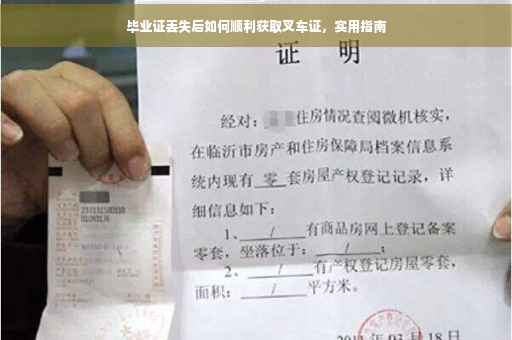 毕业证丢失后如何顺利获取叉车证，实用指南
证 明
经对： 住房情况查阅微机核实，
在临沂市房产和住房保障局档案信息系
统内现有 零 套房屋产权登记记录，详
细信息如下：
1、 / 有商品房网上登记备案
零套，坐落位于： / ；
2、 / 有产权登记房屋零套，
面积： / 平方米。